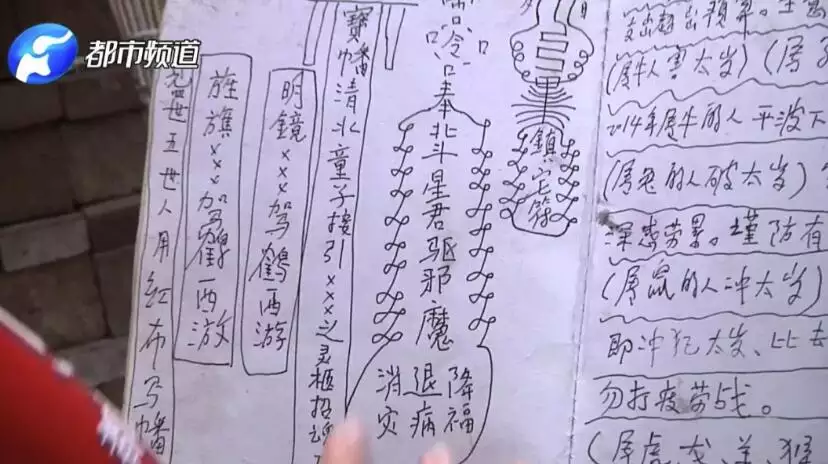 都市频道
鎮宅符
奉北斗星君驱邪魔
降福
退病
消灾
寳幡清北童子接引×××之灵柩招魂
明鏡×××驾鹤西游
旌旗×××驾鶴西游
五世人用红布写幡
(属牛人害太岁)(属
2014年属牛的人平波下
(属兔的人破太岁)
深感劳累。谨防有
(属鼠的人冲太岁)
即冲犯太岁、比去
勿打疲劳战。
(属虎、龙、羊、猴